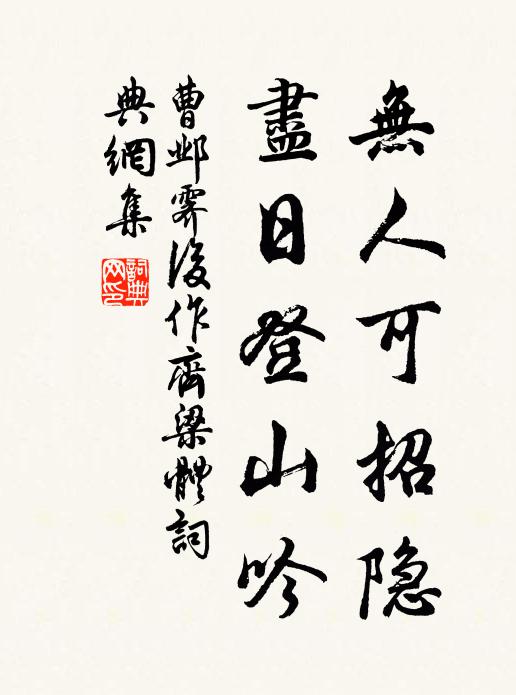 無人可招隐
盡日登山吟
曹邺霽後作齊梁體詞
典網集
詞典
网印